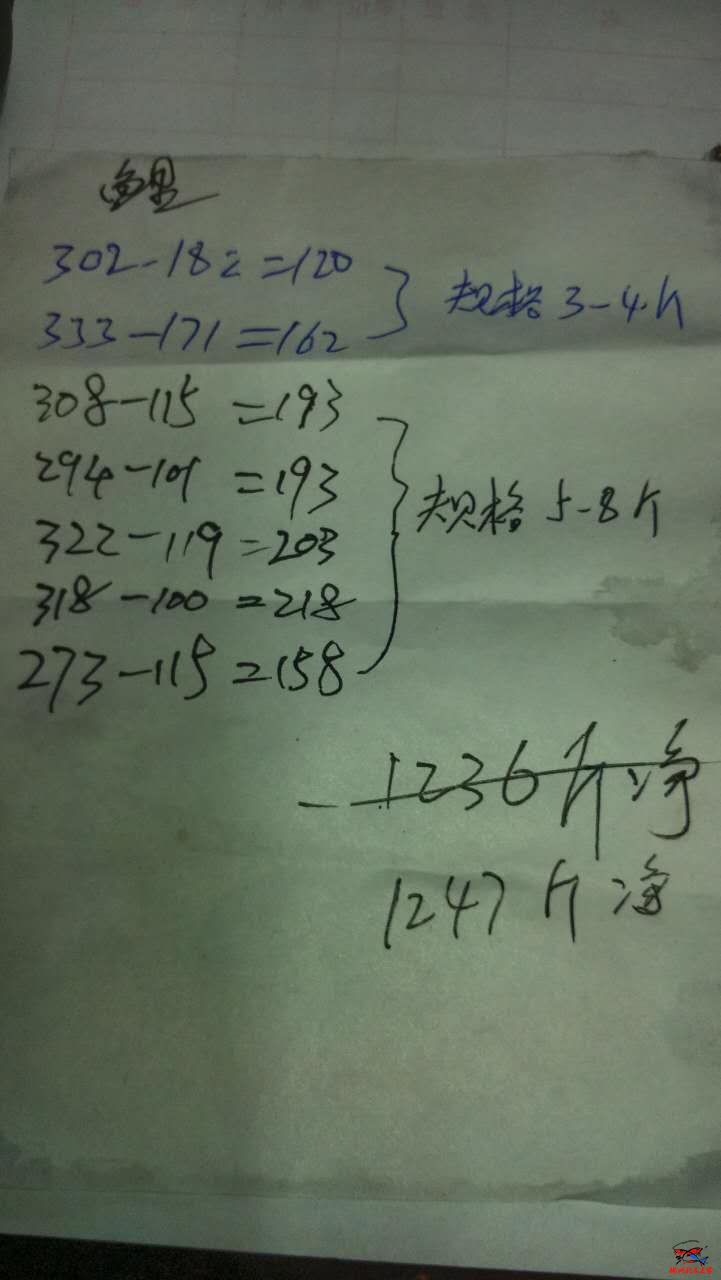 鲤
302-182=120
333-171=162
规格3-4斤
308-115=193
294-101=193
322-119=203
318-100=218
273-115=158
规格5-8斤
1236斤净
1247斤净